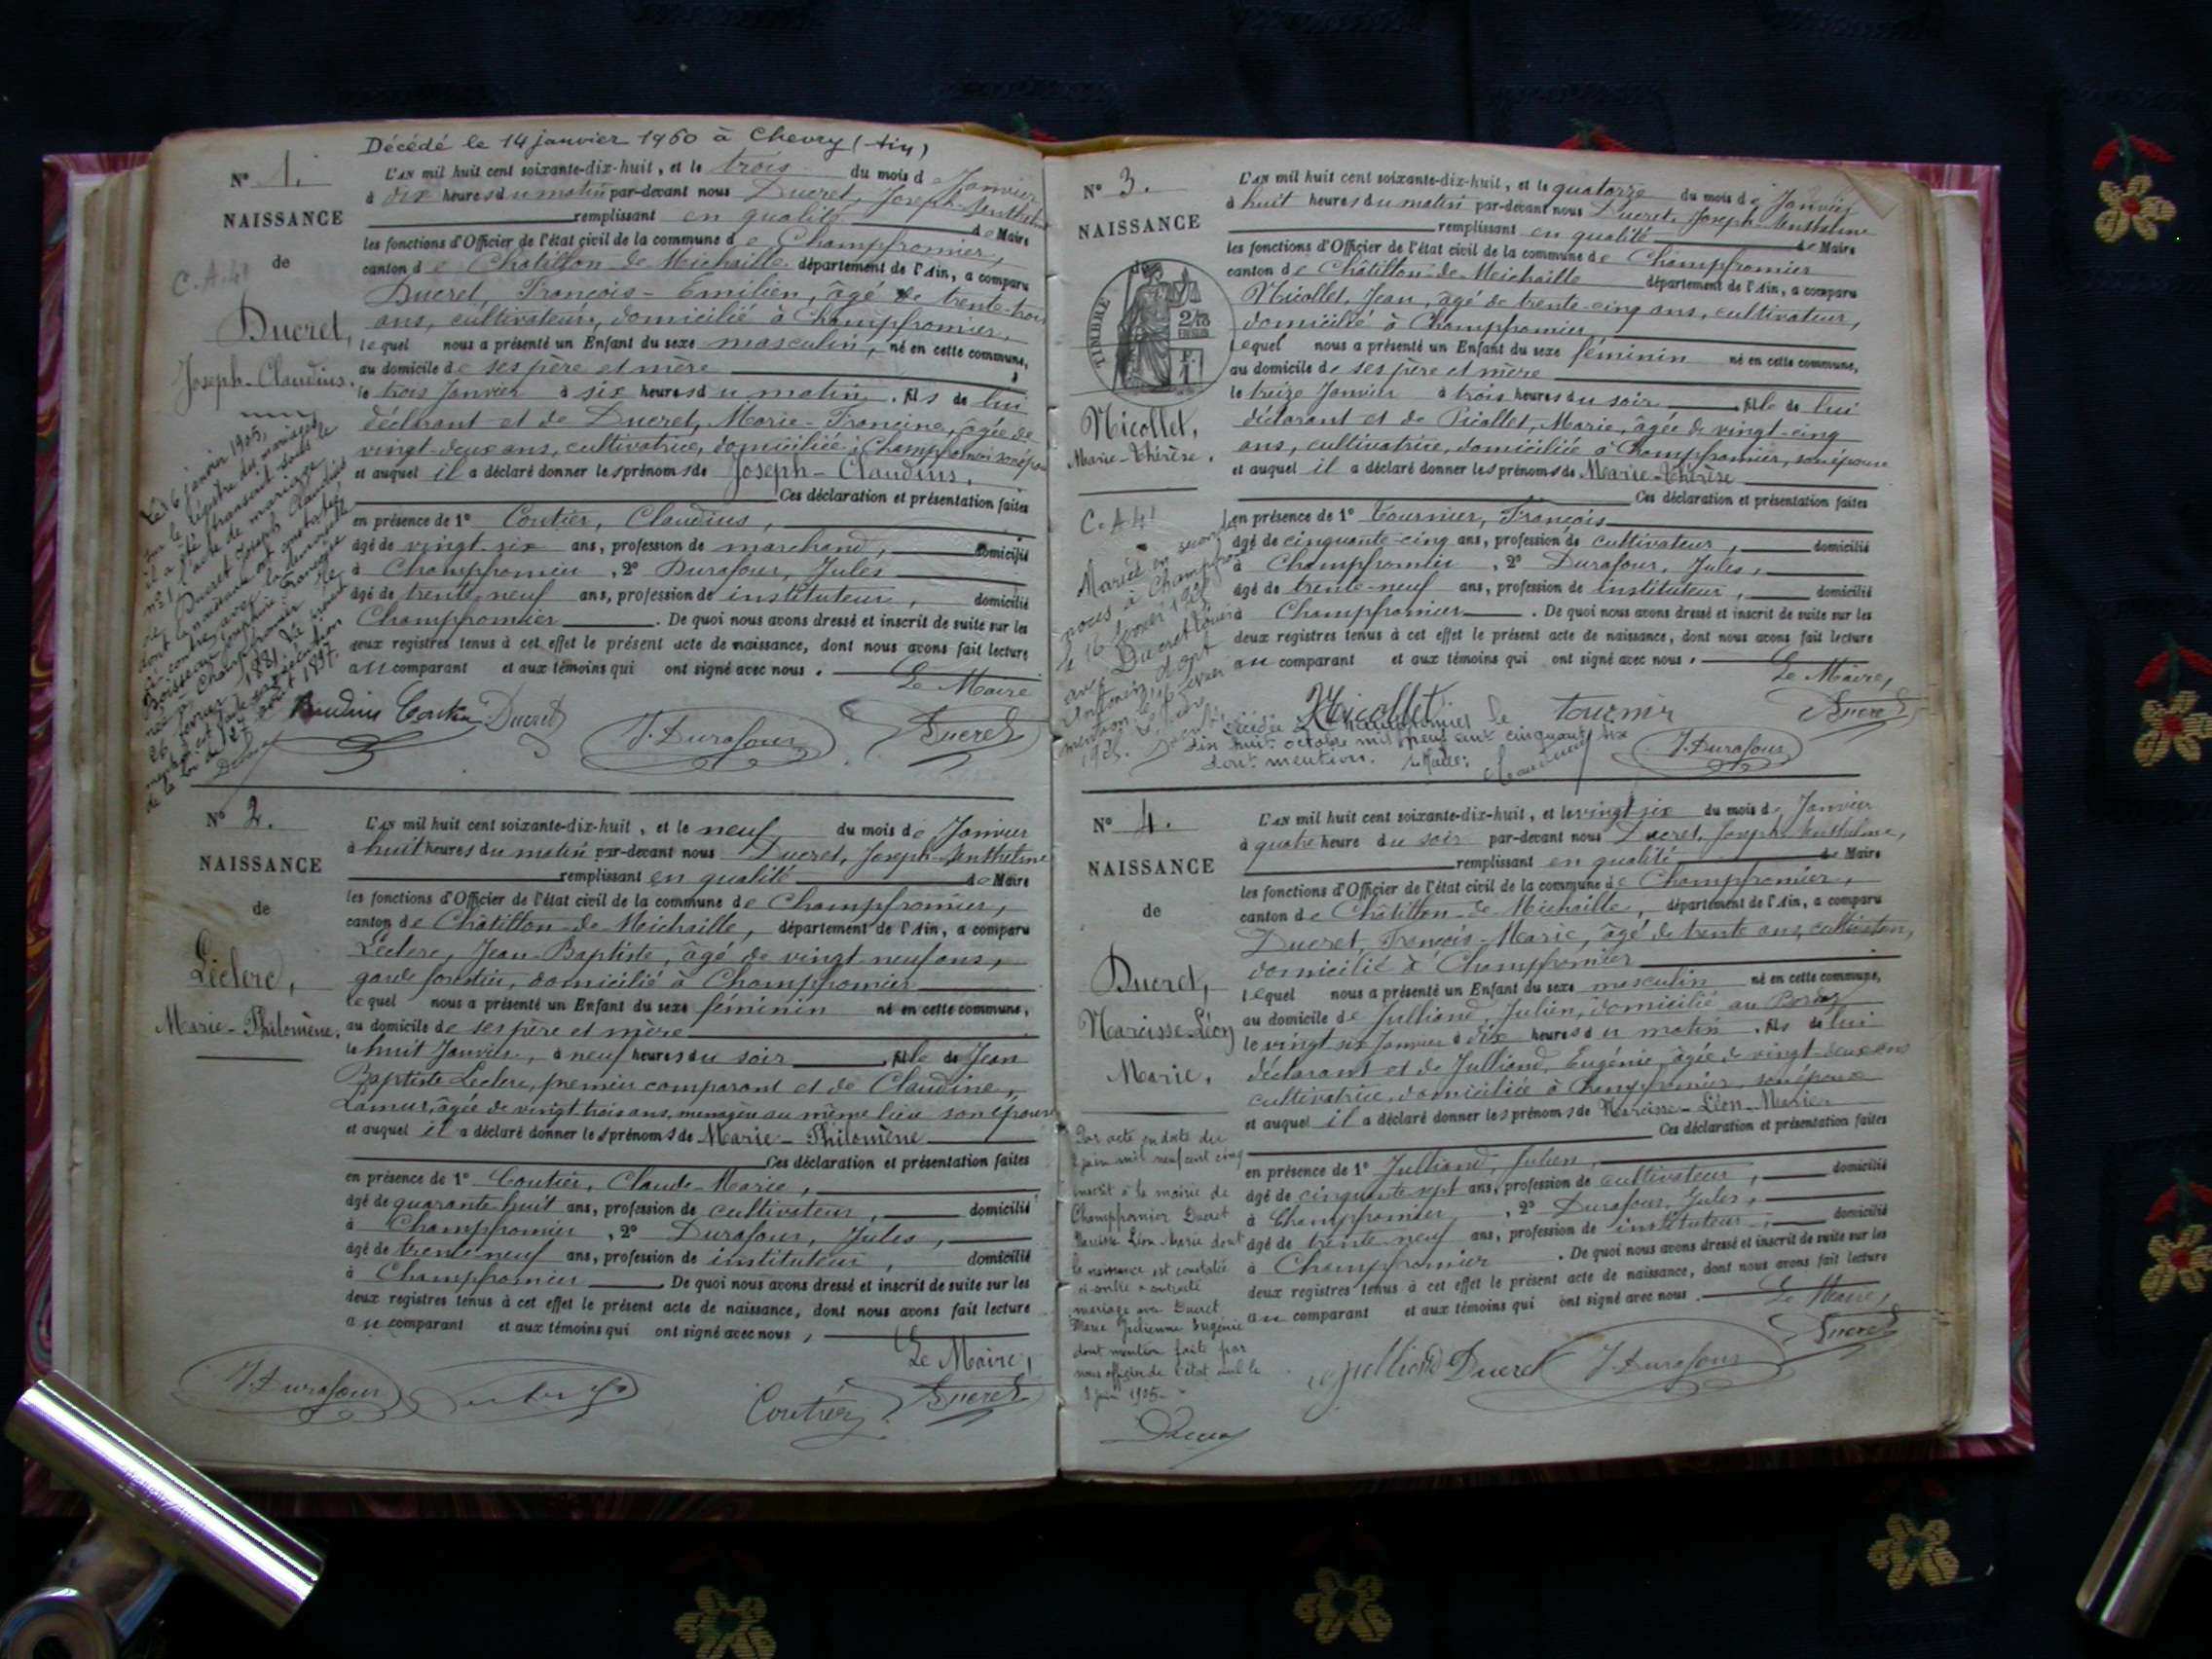 Décédé le 14 janvier 1960 à Chevry (Ain)
N° 1.
NAISSANCE
de
C.A.41
Ducret,
Joseph-Claudius.
L'AN mil huit cent soixante-dix-huit, et le trois du mois de Janvier
à dix heures du matin par-devant nous Ducret, Joseph-Anthelme
remplissant en qualité de Maire
les fonctions d'Officier de l'état civil de la commune de Champfromier,
canton de Châtillon-de-Michaille département de l'Ain, a comparu
Ducret, François-Emilien, âgé de trente-trois
ans, cultivateur, domicilié à Champfromier,
lequel nous a présenté un Enfant du sexe masculin, né en cette commune,
au domicile de ses père et mère
le trois Janvier à six heures du matin. fils de lui
déclarant et de Ducret, Marie-Francine, âgée de
vingt-deux ans, cultivatrice, domiciliée à Champfromier son épouse
et auquel il a déclaré donner les prénoms de Joseph-Claudius.
Ces déclaration et présentation faites
en présence de 1° Coutier, Claudius,
âgé de vingt-six ans, profession de marchand, domicilié
à Champfromier, 2° Durafour, Jules
âgé de trente-neuf ans, profession de instituteur, domicilié
Champfromier. De quoi nous avons dressé et inscrit de suite sur les
deux registres tenus à cet effet le présent acte de naissance, dont nous avons fait lecture
au comparant et aux témoins qui ont signé avec nous.
Le Maire
Le 6 janvier 1905,
sur le registre des mariages
il a été transcrit sous le
n° 1 l'acte de mariage
de Ducret Joseph Claudius
dont la naissance est constatée
ci-contre, avec la demoiselle
Joséphine Françoise
née à Champfromier le
26 février 1881.
de la loi du 17 août 1897.
Claudius Coutier Ducret
J. Durafour
Ducret
N° 2.
NAISSANCE
de
Leclerc,
Marie-Philomène.
L'AN mil huit cent soixante-dix-huit, et le neuf du mois de Janvier
à huit heures du matin par-devant nous Ducret, Joseph-Anthelme
remplissant en qualité de Maire
les fonctions d'Officier de l'état civil de la commune de Champfromier,
canton de Châtillon-de-Michaille, département de l'Ain, a comparu
Leclerc, Jean-Baptiste, âgé de vingt neuf ans,
garde forestier, domicilié à Champfromier
lequel nous a présenté un Enfant du sexe féminin né en cette commune,
au domicile de ses père et mère
le huit Janvier, à neuf heures du soir fille de Jean
Baptiste Leclerc, premier comparant et de Claudine
Lamur, âgée de vingt trois ans, ménagère au même lieu son épouse
et auquel il a déclaré donner les prénoms de Marie-Philomène
Ces déclaration et présentation faites
en présence de 1° Coutier, Claude-Marie,
âgé de quarante-huit ans, profession de cultivateur, domicilié
à Champfromier, 2° Durafour, Jules,
âgé de trente neuf ans, profession de instituteur, domicilié
à Champfromier. De quoi nous avons dressé et inscrit de suite sur les
deux registres tenus à cet effet le présent acte de naissance, dont nous avons fait lecture
au comparant et aux témoins qui ont signé avec nous,
Le Maire,
J. Durafour
Coutier
Ducret
N° 3.
NAISSANCE
de
TIMBRE
Nicollet,
Marie-Thérèse.
C.A.41
L'AN mil huit cent soixante-dix-huit, et le quatorze du mois de Janvier
à huit heures du matin par-devant nous Ducret, Joseph-Anthelme
remplissant en qualité de Maire
les fonctions d'Officier de l'état civil de la commune de Champfromier
canton de Châtillon-de-Michaille département de l'Ain, a comparu
Nicollet, Jean, âgé de trente-cinq ans, cultivateur,
domicilié à Champfromier
lequel nous a présenté un Enfant du sexe féminin né en cette commune,
au domicile de ses père et mère
le treize Janvier à trois heures du soir fille de lui
déclarant et de Picollet, Marie, âgée de vingt-cinq
ans, cultivatrice, domiciliée à Champfromier, son épouse
et auquel il a déclaré donner les prénoms de Marie-Thérèse
Ces déclaration et présentation faites
en présence de 1° Tournier, François
âgé de cinquante-cinq ans, profession de cultivateur, domicilié
à Champfromier, 2° Durafour, Jules,
âgé de trente-neuf ans, profession de instituteur, domicilié
à Champfromier. De quoi nous avons dressé et inscrit de suite sur les
deux registres tenus à cet effet le présent acte de naissance, dont nous avons fait lecture
au comparant et aux témoins qui ont signé avec nous.
Le Maire,
Mariée en secondes
noces à Champfromier
le 16 février
avec Ducret
dont
mention
Nicollet Tournier Ducret
Décédée à Champfromier le
dix huit octobre mil neuf cent cinquante six
dont mention. Le Maire:
J. Durafour
N° 4.
NAISSANCE
de
Ducret,
Narcisse-Léon
Marie.
L'AN mil huit cent soixante-dix-huit, et le vingt six du mois de Janvier
à quatre heure du soir par-devant nous Ducret, Joseph-Anthelme,
remplissant en qualité de Maire
les fonctions d'Officier de l'état civil de la commune de Champfromier,
canton de Châtillon-de-Michaille, département de l'Ain, a comparu
Ducret, François-Marie, âgé de trente ans, cultivateur,
domicilié à Champfromier
lequel nous a présenté un Enfant du sexe masculin né en cette commune,
au domicile de Julliand, Julien, domicilié au
le vingt six Janvier à dix heures du matin. fils de lui
déclarant et de Julliand, Eugénie, âgée de vingt-deux ans
cultivatrice, domiciliée à Champfromier, son épouse
et auquel il a déclaré donner les prénoms de Narcisse-Léon-Marie
Ces déclaration et présentation faites
en présence de 1° Julliand, Julien,
âgé de cinquante-sept ans, profession de cultivateur, domicilié
à Champfromier, 2° Durafour, Jules,
âgé de trente-neuf ans, profession de instituteur, domicilié
à Champfromier. De quoi nous avons dressé et inscrit de suite sur les
deux registres tenus à cet effet le présent acte de naissance, dont nous avons fait lecture
au comparant et aux témoins qui ont signé avec nous.
Le Maire,
Par acte en date du
3 juin mil neuf cent cinq
inscrit à la mairie de
Champfromier Ducret
Narcisse Léon Marie dont
la naissance est constatée
ci-contre a contracté
mariage avec Ducret
Marie Julienne Eugénie
dont mention faite par
nous officier de l'état civil le
3 juin 1905
Ducret
Julliand Ducret J. Durafour
Ducret